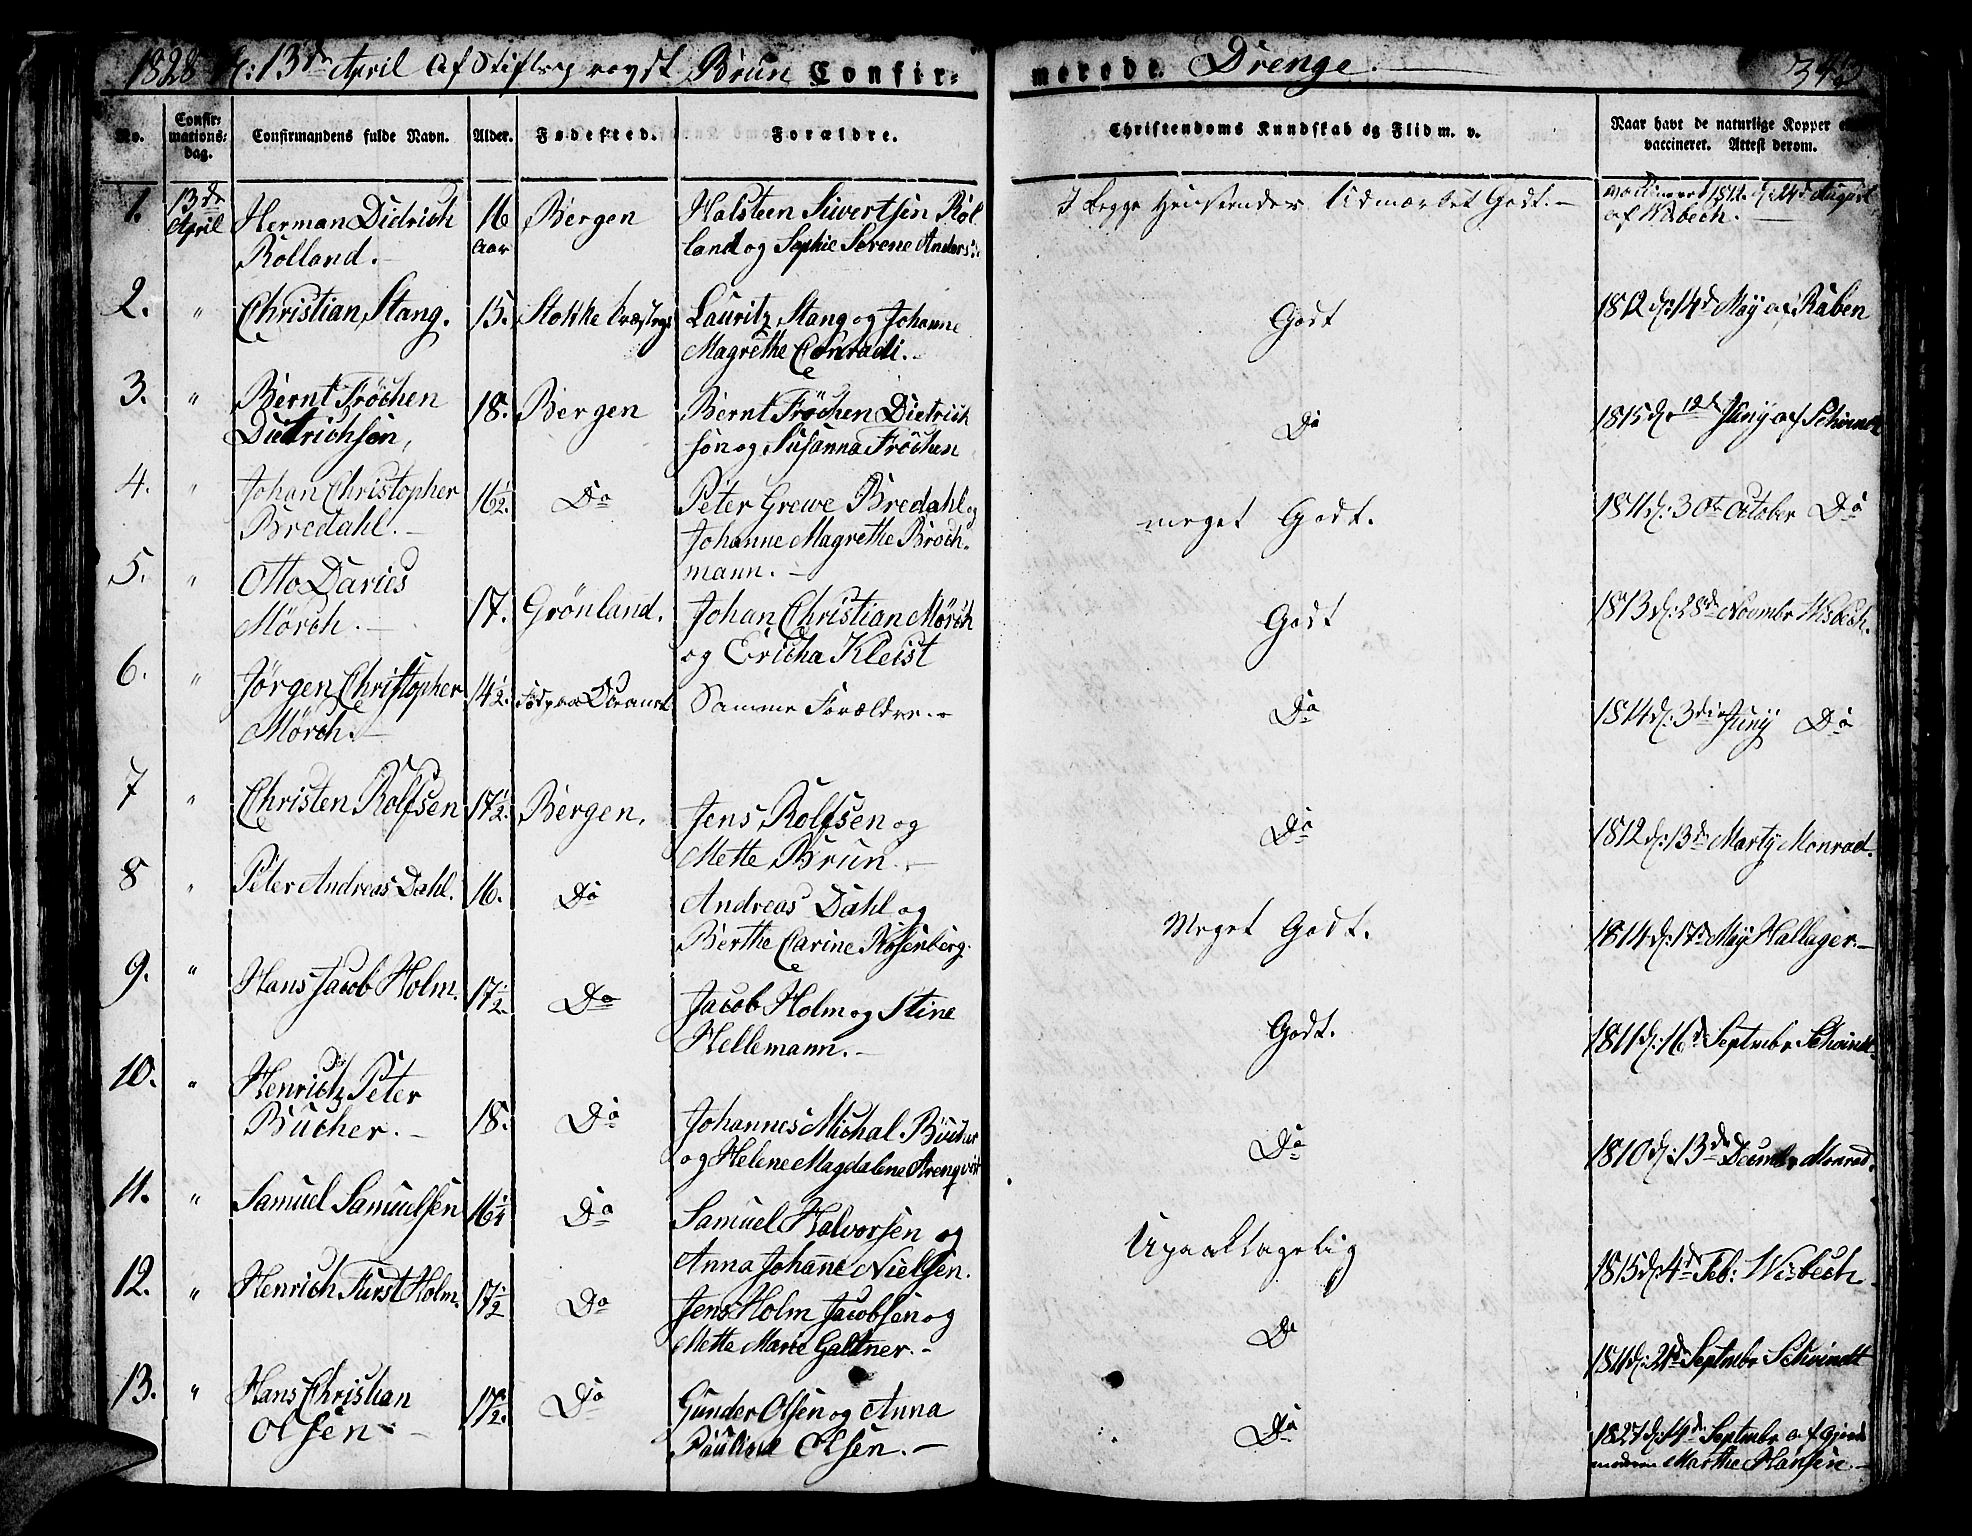 1828 d: 13de April af Stiftsprovst Brun Confirmerede Drenge. 343
No. Confirmationsdag. Confirmandens fulde Navn. Alder. Fødested. Forældre. Christendoms Kundskab og Flid m. v. Naar havt de naturlige Kopper eller vaccineret. Attest derom.
1. 13de April Herman Didrich Rolland. 16 aar Bergen Halsteen Sivertsen Rolland og Sophie Sørene Anders: I begge Henseender Udmærket Godt. vaccineret 1812 d: 24d August af Wisbech.
2. " Christian Stang. 15. Stokke Lauritz Stang og Johanne Magrethe Conradi. Godt 1812 d: 14d May af Raben
3. " Bernt Fröchen Dietrichsen, 18. Bergen Bernt Fröchen Dietrichsen og Susanna Fröchen Do 1815 d: 12t Juny af Schwindt
4. " Johan Christopher Bredahl. 16½. Do Peter Grewe Bredahl og Johanne Magrethe Brochmann. meget Godt. 1811 d: 30te October Do
5. " Otto Daries Mörch. 17. Grönland. Johan Christian Mörch og Ericha Kleist Godt 1813 d: 28de Novembr Wisbech.
6. " Jörgen Christopher Mörch. 14½. Født paa Oceanet Samme Forældre. Do 1814 d: 3die Juny Do
7 " Christen Rolfsen 17½. Bergen. Jens Rolfsen og Mette Brun. Do 1812 d: 13de Marty Monrad.
8 " Peter Andreas Dahl. 16. Do Andreas Dahl og Berthe Carine Rosenberg. Meget Godt. 1814 d: 17d May Hallager.
9. " Hans Jacob Holm. 17½. Do Jacob Holm og Stine Hellemann. Godt. 1811 d: 16d Septembr Schvindt.
10. " Henrich Peter Bucher. 18. Do Johannes Michal Bucher og Helene Magdalene Strenqvist Do 1810 d: 13de Decembr Monrad.
11. " Samuel Samuelsen 16¼ Do Samuel Halvorsen og Anna Johanne Nielsen. Upaaklagelig 1815 d: 4d Feb: Wisbech
12. " Henrich Furst Holm. 17½ Do Jens Holm Jacobsen og Mette Marie Galtner. Do 1811 d: 21de Septembr Schvindt
13. " Hans Christian Olsen 17½. Do Gunder Olsen og Anna Pauline Olsen. Do 1827 d: 14d Septembr af Gjordemoderen Marthe Hansen.